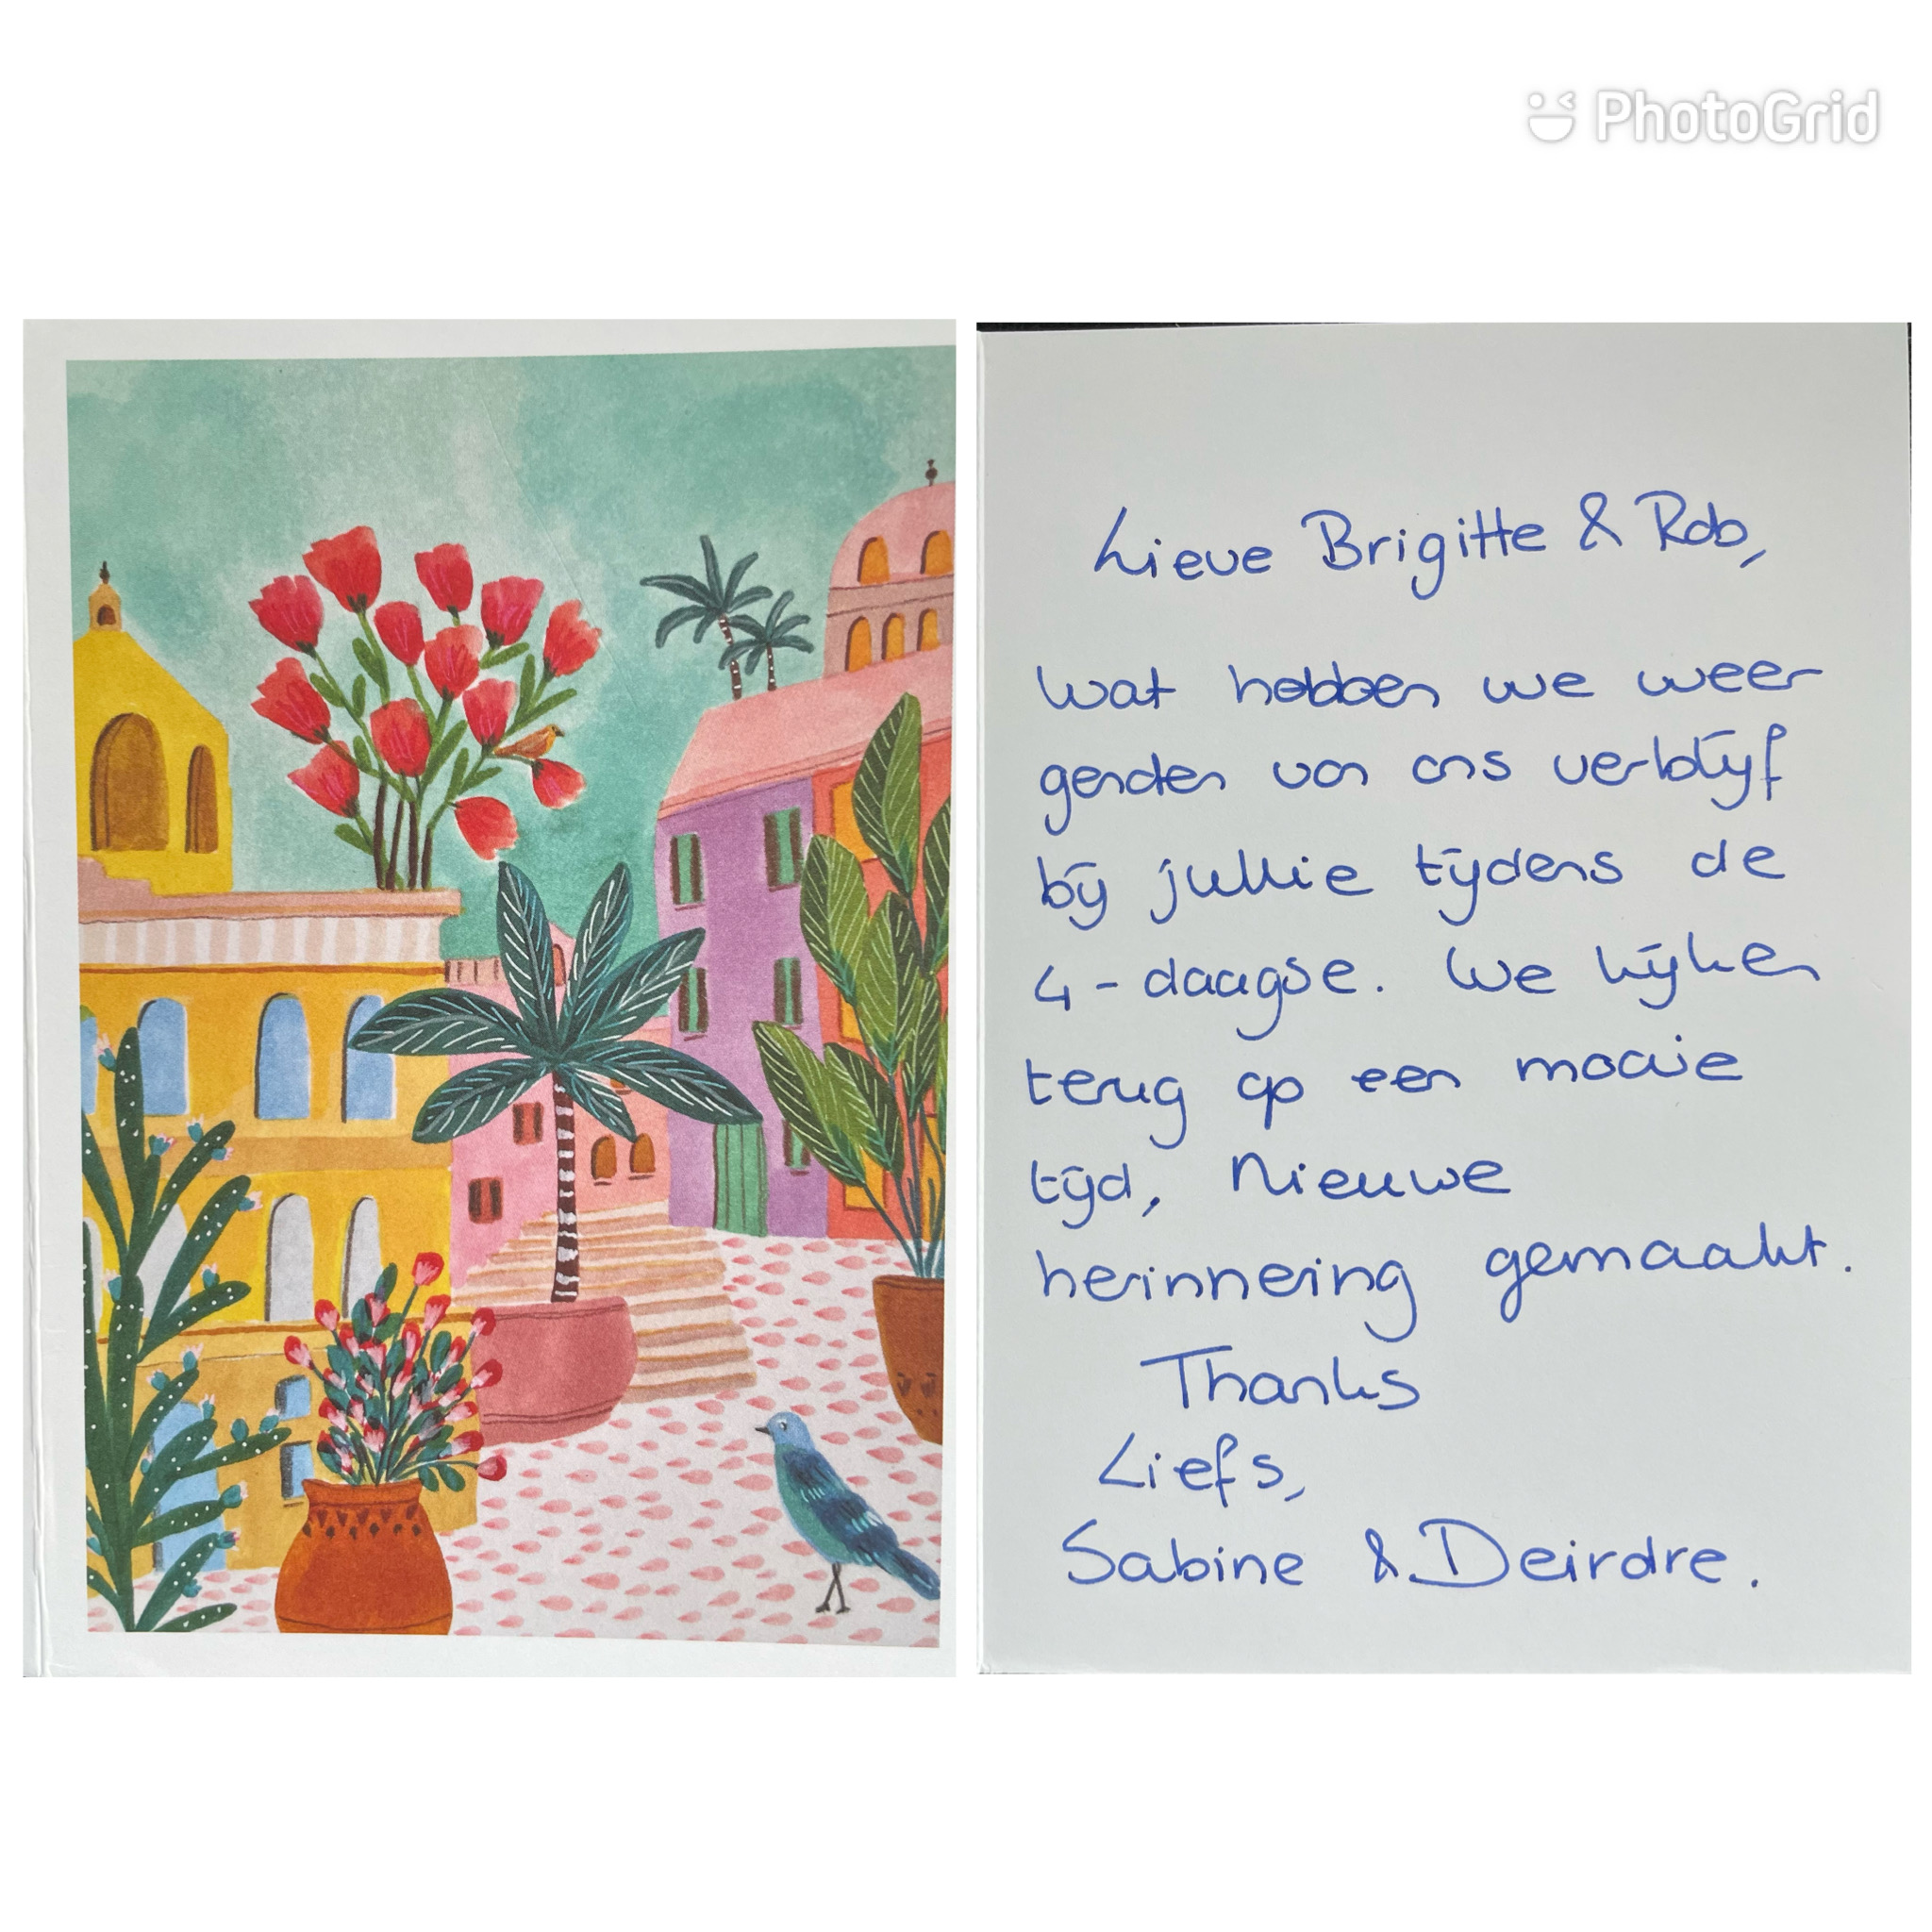 PhotoGrid
Lieve Brigitte & Rob,
Wat hebben we weer
genoten van ons verblijf
bij jullie tijdens de
4-daagse. We kijken
terug op een mooie
tijd, Nieuwe
herinnering gemaakt.
Thanks
Liefs,
Sabine & Deirdre.